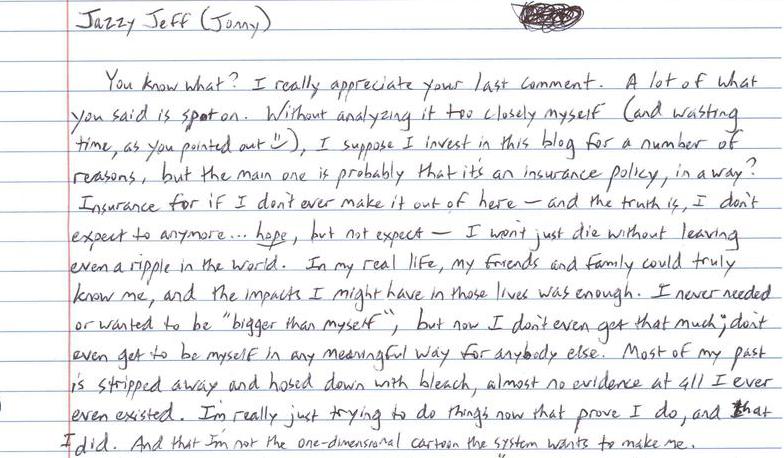 Jazzy Jeff (Jonny)
You know what? I really appreciate your last comment. A lot of what
you said is spot on. Without analyzing it too closely myself (and wasting
time, as you pointed out), I suppose I invest in this blog for a number of
reasons, but the main one is probably that it's an insurance policy, in a way?
Insurance for if I don't ever make it out of here – and the truth is, I don't
expect to anymore... hope, but not expect – I won't just die without leaving
even a ripple in the world. In my real life, my friends and family could truly
know me, and the impacts I might have in those lives was enough. I never needed
or wanted to be "bigger than myself", but now I don't even get that much; don't
even get to be myself in any meaningful way for anybody else. Most of my past
is stripped away and hosed down with bleach, almost no evidence at all I ever
even existed. I'm really just trying to do things now that prove I do, and that
I did. And that I'm not the one-dimensional cartoon the system wants to make me.